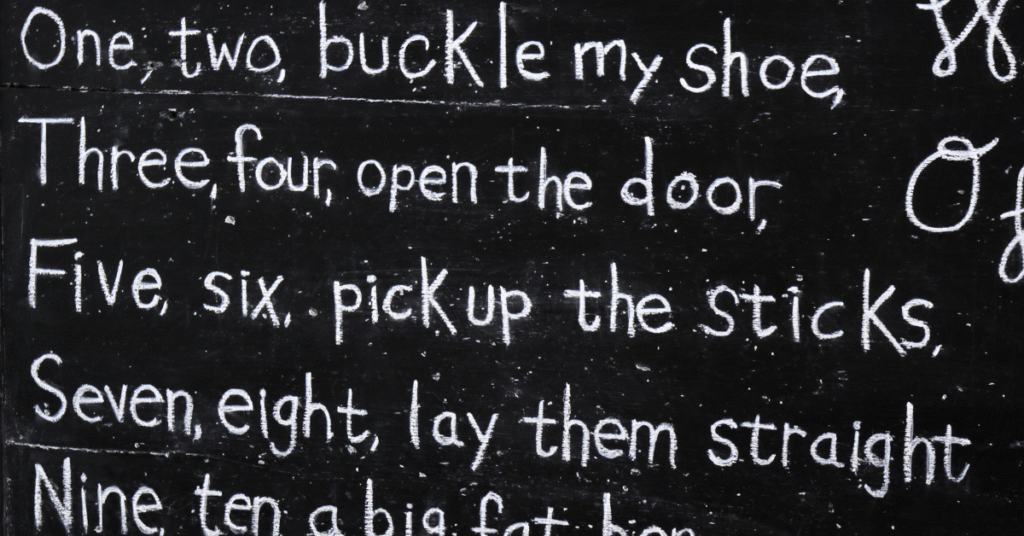 One, two, buckle my shoe,
Three, four, open the door,
Five, six, pick up the sticks,
Seven, eight, lay them straight
Nine, ten a big fat hen